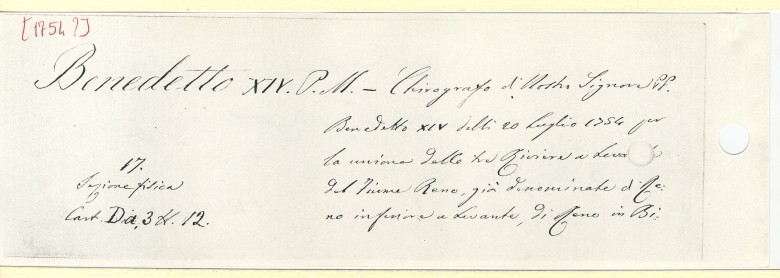 [1754?]
Benedetto XIV. P. M. – Chirografo di Nostro Signore PP.
Benedetto XIV delli 20 Luglio 1754 per
la unione delle tre Riviere a Levante
del Fiume Reno, già denominate di Re:
no inferiore a Levante, di Reno in Bi:
17.
Sezione fisica
Cart. Da, 3 N. 12.